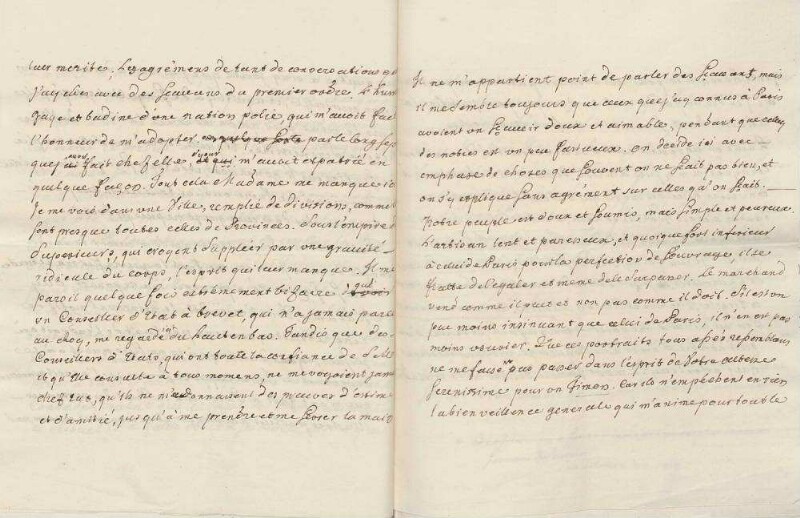 leur merite. Les agrémens de tant de conversations que
j'ay eües avec des sçavans du premier ordre. L'hum
gage et badine d'une nation polie, qui m'avoit fait
l'honneur de m'adopter par le long sejour
que j'avois fait chez elle, m'avoit expatrié en
quelque façon. Tout cela Madame me manque ici
Je me vois dans une Ville, remplie de divisions, comme
sont presque toutes celles de Provinces. Sous l'empire de
superieurs, qui croyent suppléer par une gravité
ridicule du corps, l'esprit qui leur manque. Il me
paroit quelque fois extrêmement bizarre qu'
un Conseiller d'Etat à brevet, qui n'a jamais parlé
au Roy, me regarde du haut en bas. Tandis que des
Conseillers d'Etats, qui ont toute la confiance de
et qu'Elle consulte à tous momens, ne me voyoient jamais
chez eux, qu'ils ne me donnaissent des preuves d'estime
et d'amitié, jusqu'à me prendre et me serrer la main
Il ne m'appartient point de parler des Sçavants, mais
il me semble toujours que ceux que j'ay connus à Paris
avoient un sçavoir doux et aimable, pendant que celuy
des notres est un peu fastueux. On decide ici avec
emphase de choses que souvent on ne sçait pas bien, et
on s'y explique sans agrément sur celles qu'on sçait.
Notre peuple est doux et soumis, mais simple et peureux.
L'artisan lent et paresseux, et quoique fort inferieur
à celui de Paris pour la perfection de l'ouvrage, il se
flatte de l'égaler et même de le surpasser. Le marchand
vend comme il veut et non pas comme il doit. S'il est un
peu moins insinuant que celui de Paris, il n'en est pas
moins usurier. Que ces portraits tous après ressemblans
ne me fasse pas passer dans l'esprit de Votre Altesse
Serenissime pour un Timon. Car ils n'empêchent en rien
la bienveillence generale qui m'anime pour toute